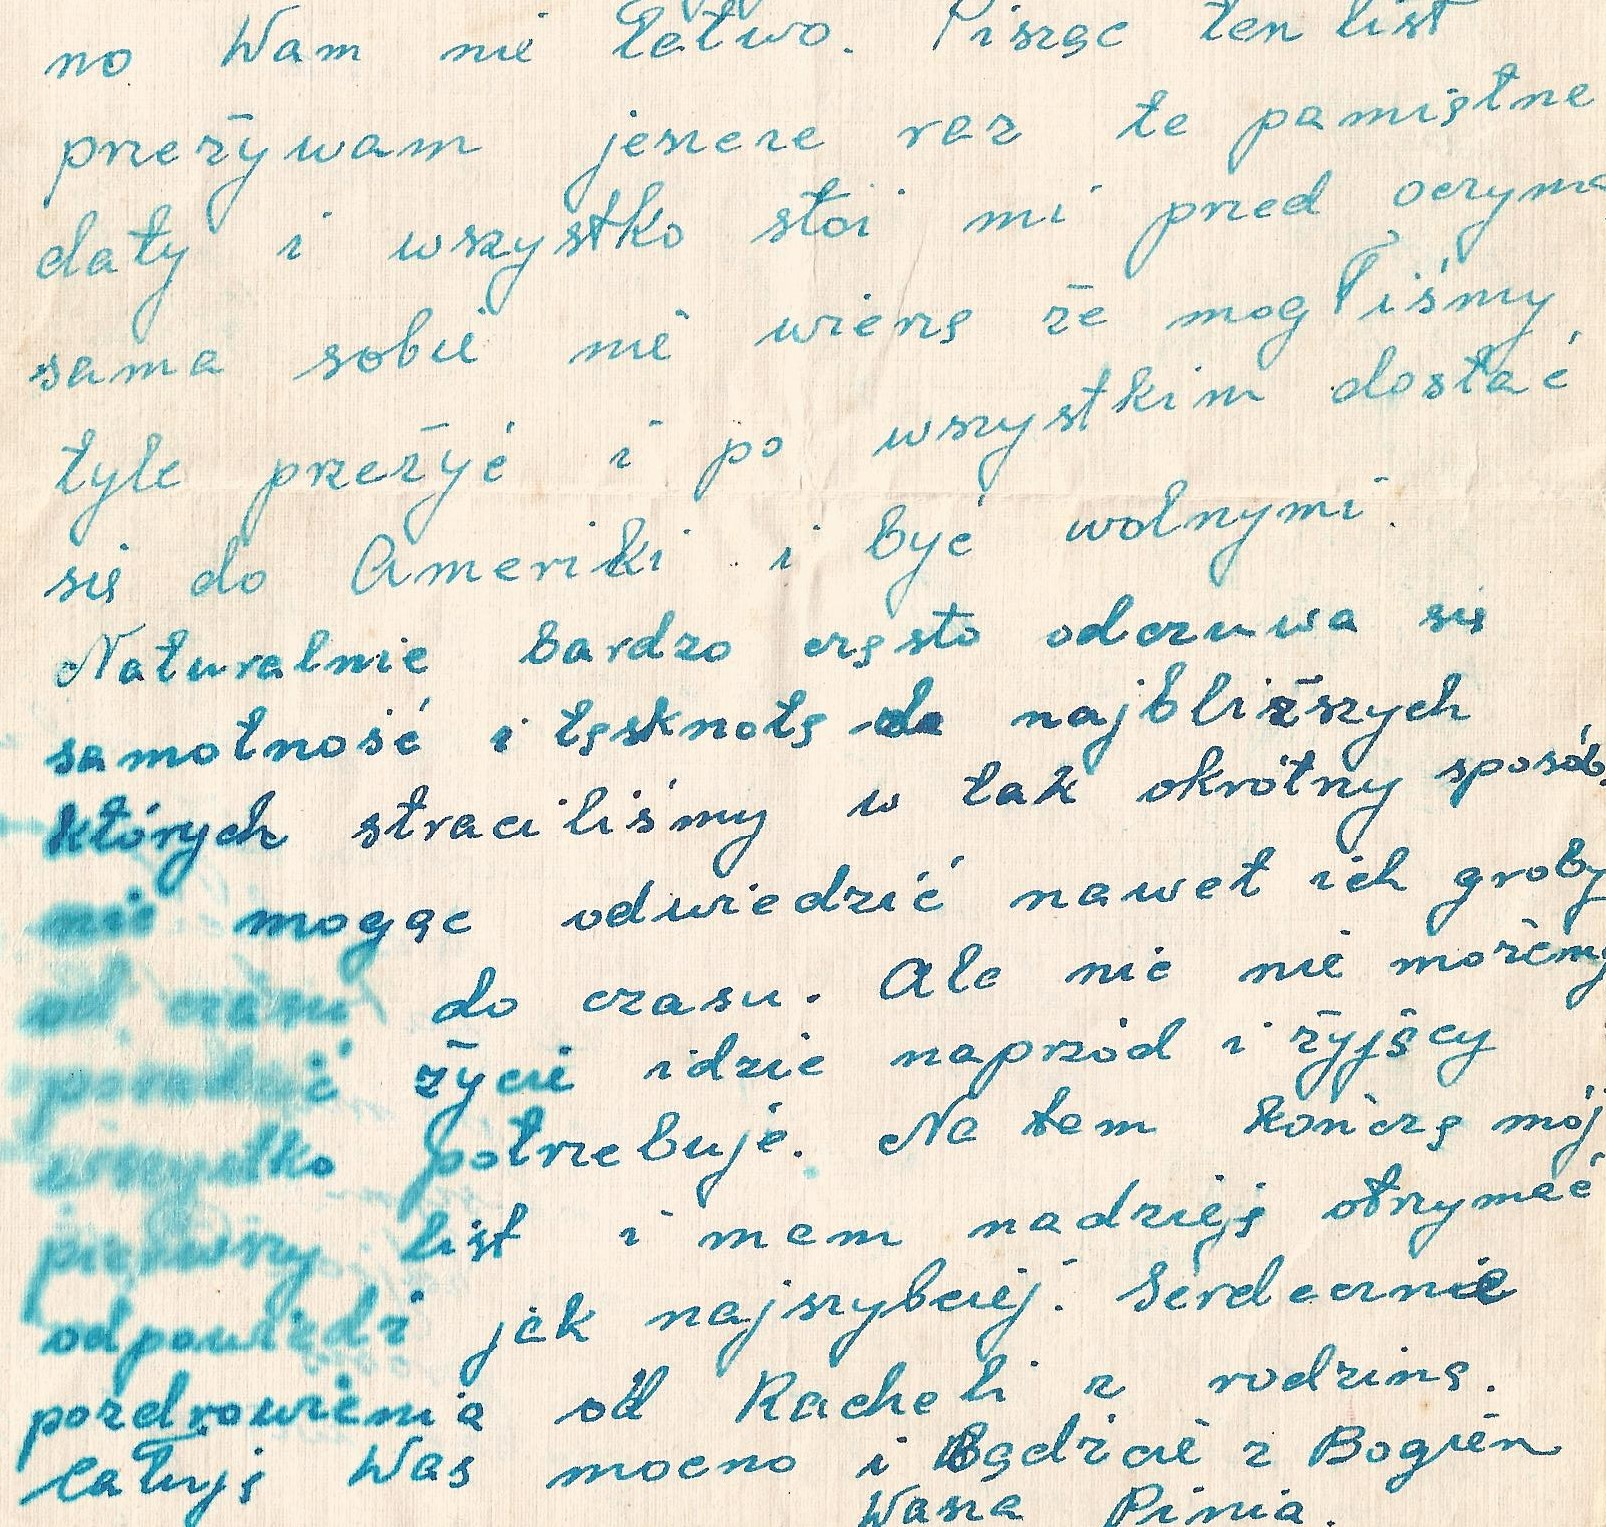 no Wam nie łatwo. Pisząc ten list
przeżywam jeszcze raz te pamiętne
daty i wszystko stoi mi przed oczyma
sama sobie nie wierzę że mogliśmy
tyle przeżyć i po wszystkim dostać
się do Ameriki i być wolnymi.
Naturalnie bardzo często odczuwa się
samotność i tęsknotę do najbliższych
których straciliśmy w tak okrótny sposób,
nie mogąc odwiedzić nawet ich groby
od czasu do czasu. Ale nic nie możemy
poradzić życie idzie naprzód i żyjący
wszystko potrzebuje. Na tem kończę mój
pierwszy list i mam nadzieję otrzymać
odpowiedź jak najszybciej. Serdecznie
pozdrowienia od Racheli z rodziną.
Całuję Was mocno i Bądźcie z Bogiem
Wasza Pinia.